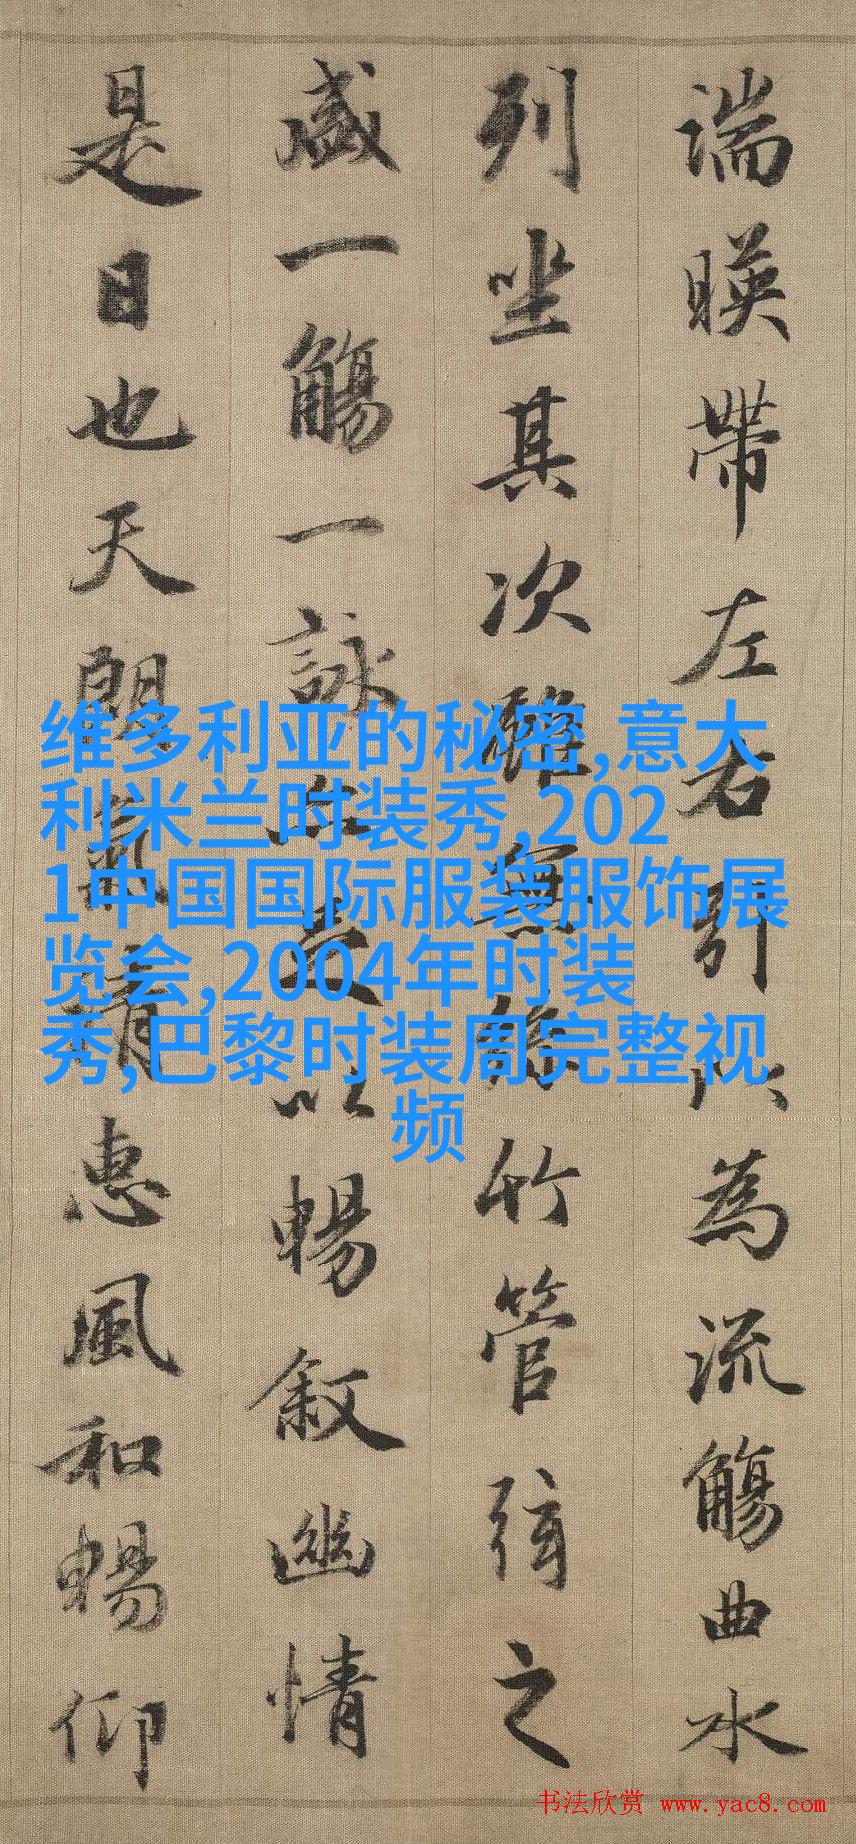 湍暎帶左右引以為流觴曲水
列坐其次雖無絲竹管弦之
盛一觴一詠亦足以暢叙幽情
是日也天朗氣清惠風和暢仰
维多利亚的秘密,意大
利米兰时装秀,202
1中国国际服装服饰展
览会,2004年时装
秀,巴黎时装周完整视
频
书法欣赏 www.yac8.com